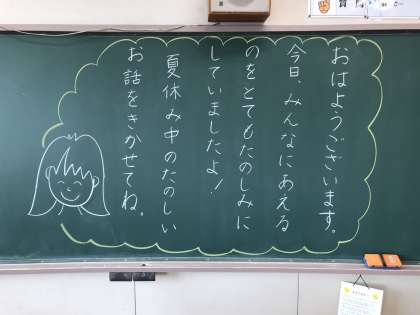 おはようございます。
今日、みんなにあえる
のをとてもたのしみに
していましたよ！
夏休み中のたのしい
お話をきかせてね。